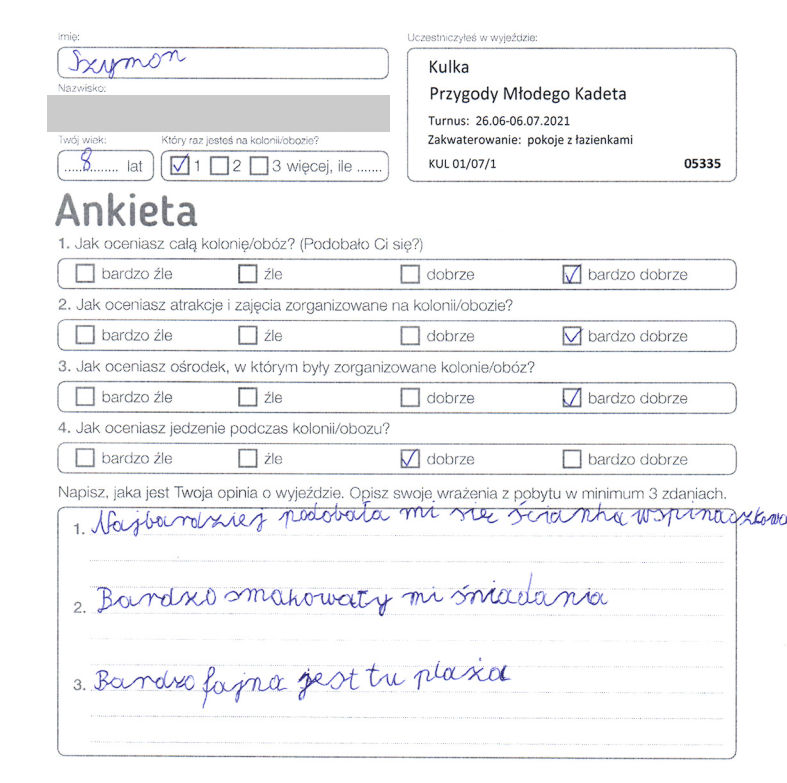 Imię:
Szymon
Nazwisko:
Twój wiek:
8 lat
Który raz jesteś na kolonii/obozie?
1 2 3 więcej, ile .......
Uczestniczyłeś w wyjeździe:
Kulka
Przygody Młodego Kadeta
Turnus: 26.06-06.07.2021
Zakwaterowanie: pokoje z łazienkami
KUL 01/07/1 05335
Ankieta
1. Jak oceniasz całą kolonię/obóz? (Podobało Ci się?)
bardzo źle źle dobrze bardzo dobrze
2. Jak oceniasz atrakcje i zajęcia zorganizowane na kolonii/obozie?
bardzo źle źle dobrze bardzo dobrze
3. Jak oceniasz ośrodek, w którym były zorganizowane kolonie/obóz?
bardzo źle źle dobrze bardzo dobrze
4. Jak oceniasz jedzenie podczas kolonii/obozu?
bardzo źle źle dobrze bardzo dobrze
Napisz, jaka jest Twoja opinia o wyjeździe. Opisz swoje wrażenia z pobytu w minimum 3 zdaniach.
1. Najbardziej podobała mi się ścianka wspinaczkowa
2. Bardzo smakowały mi śniadania
3. Bardzo fajna jest tu plaża